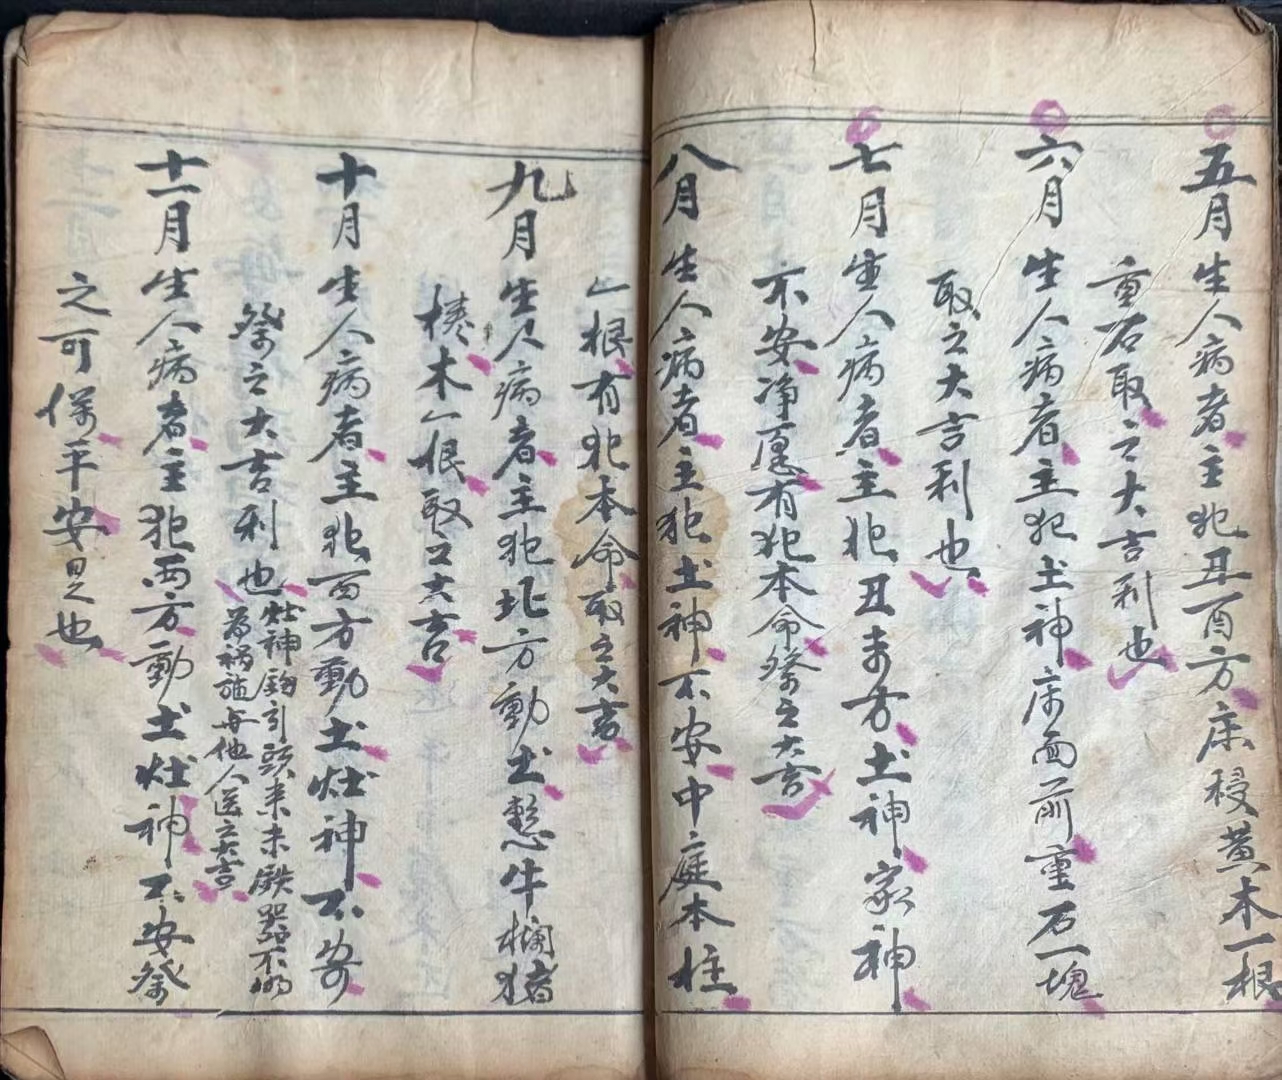 五月生人病者主犯丑酉方床移黄木一根
重石取之大吉利也
六月生人病者主犯土神床面前重石一塊
取之大吉利也
七月生人病者主犯丑未方土神家神
不安净愿有犯本命祭之大吉
八月生人病者主犯土神不安中庭本柱
一根有犯本命取之大吉
九月生人病者主犯北方動土整牛欄猪
椿木一根取之大吉
十月生人病者主犯西方動土灶神不安
祭之大吉利也灶神引頭来未鉄器不
為禍施与他人送之大吉
十一月生人病者主犯西方動土灶神不安祭
之可保平安是也